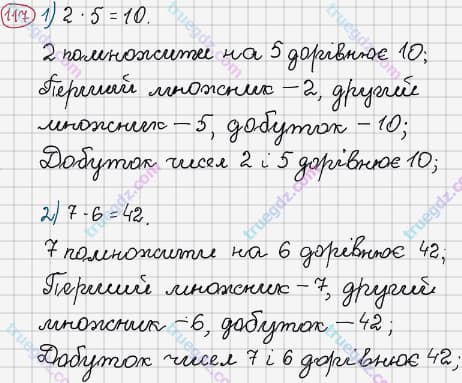 117 1) 2 · 5 = 10.
2 помножити на 5 дорівнює 10;
Перший множник – 2, другий
множник – 5, добуток – 10;
Добуток чисел 2 і 5 дорівнює 10;
2) 7 · 6 = 42.
7 помножити на 6 дорівнює 42;
Перший множник – 7, другий
множник – 6, добуток – 42;
Добуток чисел 7 і 6 дорівнює 42;
truegdz.com